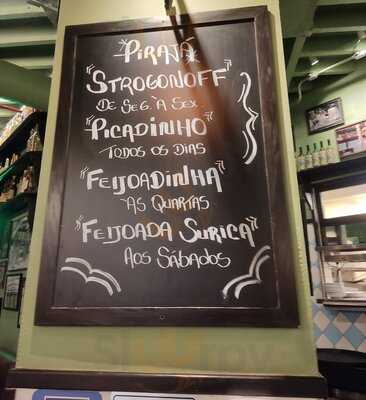 Pirajá
"Strogonoff"
de Seg. a Sex
"Picadinho"
Todos os dias
"Feijoadinha"
às quartas
"Feijoada Surica"
aos sábados